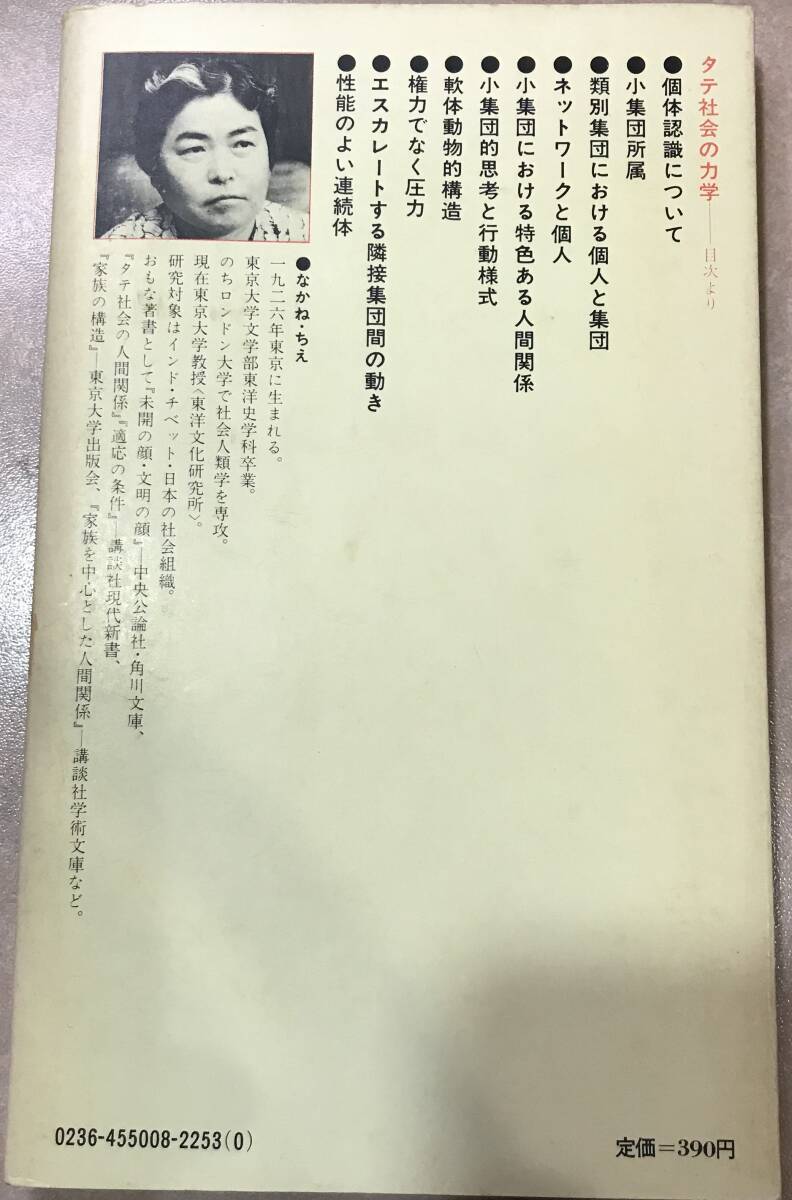 タテ社会の力学——目次より
●個体認識について
●小集団所属
●類別集団における個人と集団
●ネットワークと個人
●小集団における特色ある人間関係
●小集団的思考と行動様式
●軟体動物的構造
●権力でなく圧力
●エスカレートする隣接集団間の動き
●性能のよい連続体
●なかね・ちえ
一九二六年東京に生まれる。
東京大学文学部東洋史学科卒業。
のちロンドン大学で社会人類学を専攻。
現在東京大学教授〈東洋文化研究所〉。
研究対象はインド・チベット・日本の社会組織。
おもな著書として『未開の顔・文明の顔』—中央公論社・角川文庫、
『タテ社会の人間関係』『適応の条件』—講談社現代新書、
『家族の構造』—東京大学出版会、『家族を中心とした人間関係』—講談社学術文庫など。
0236-455008-2253(0)
定価＝390円